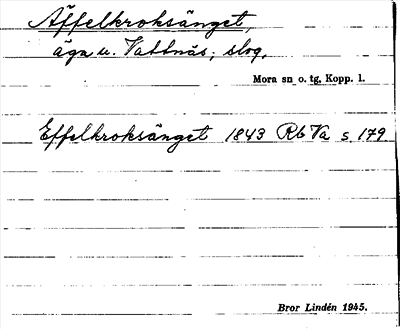 Äffelkroksänget,
äga u. Vattnäs; slog.
Mora sn o. tg, Kopp. l.
Effelkroksänget 1843 Rb Va s. 179.
Bror Lindén 1945.